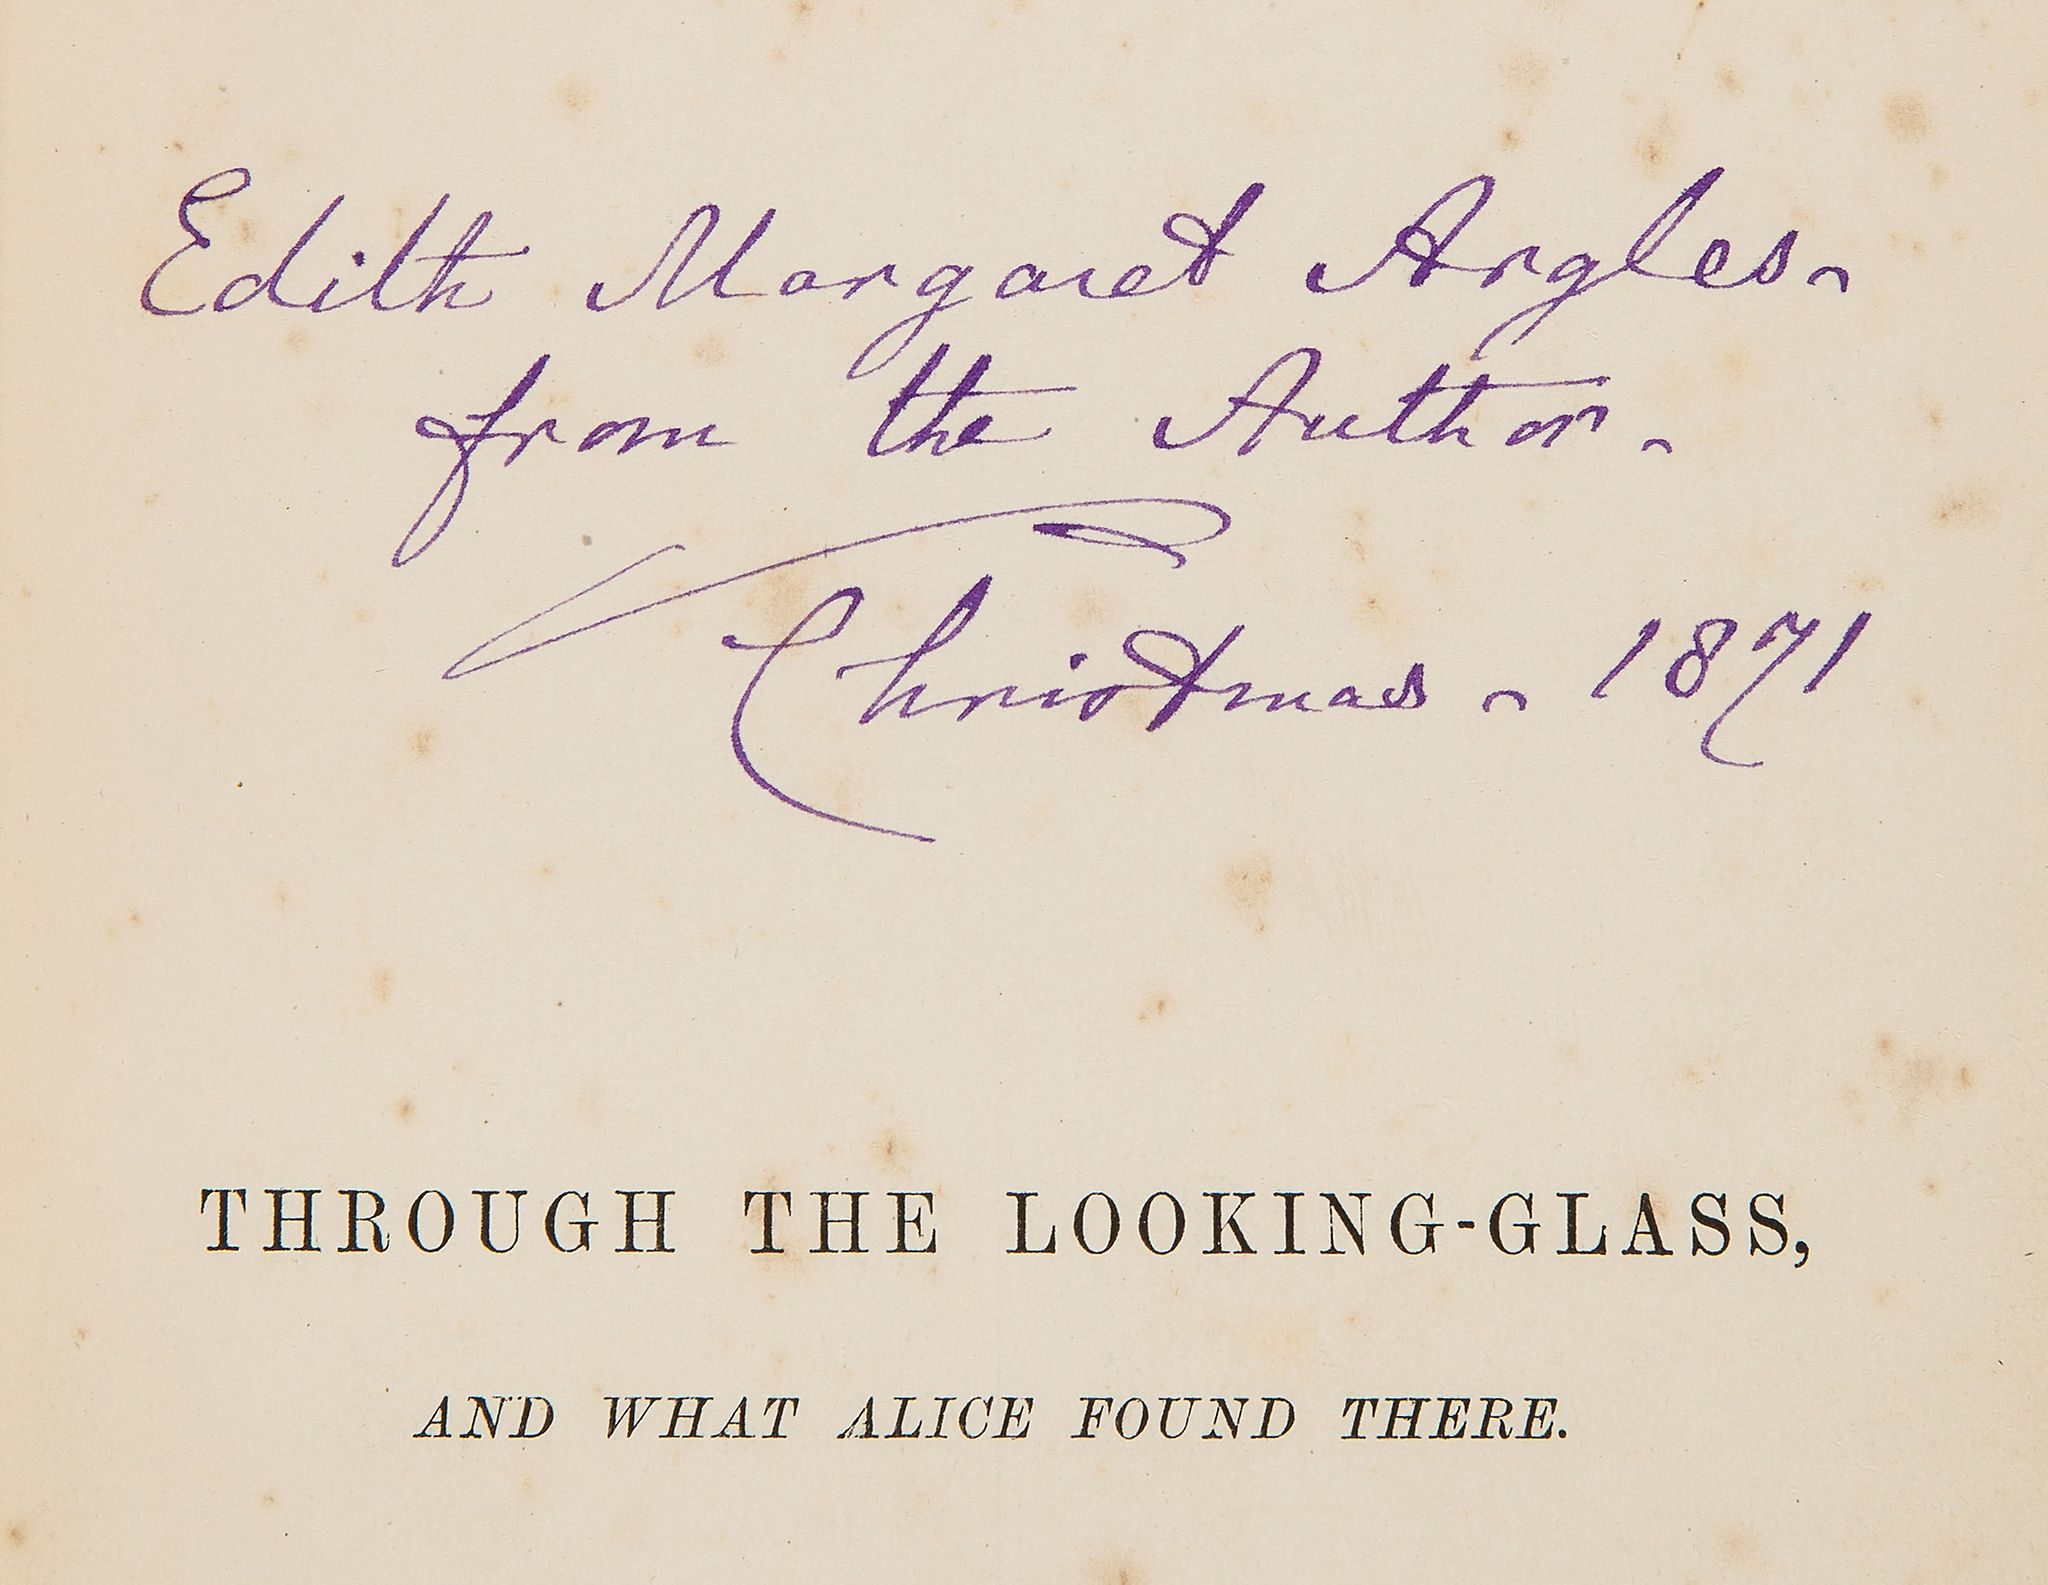 Edith Margaret Argles.
from the Author.
Christmas. 1871
THROUGH THE LOOKING-GLASS,
AND WHAT ALICE FOUND THERE.